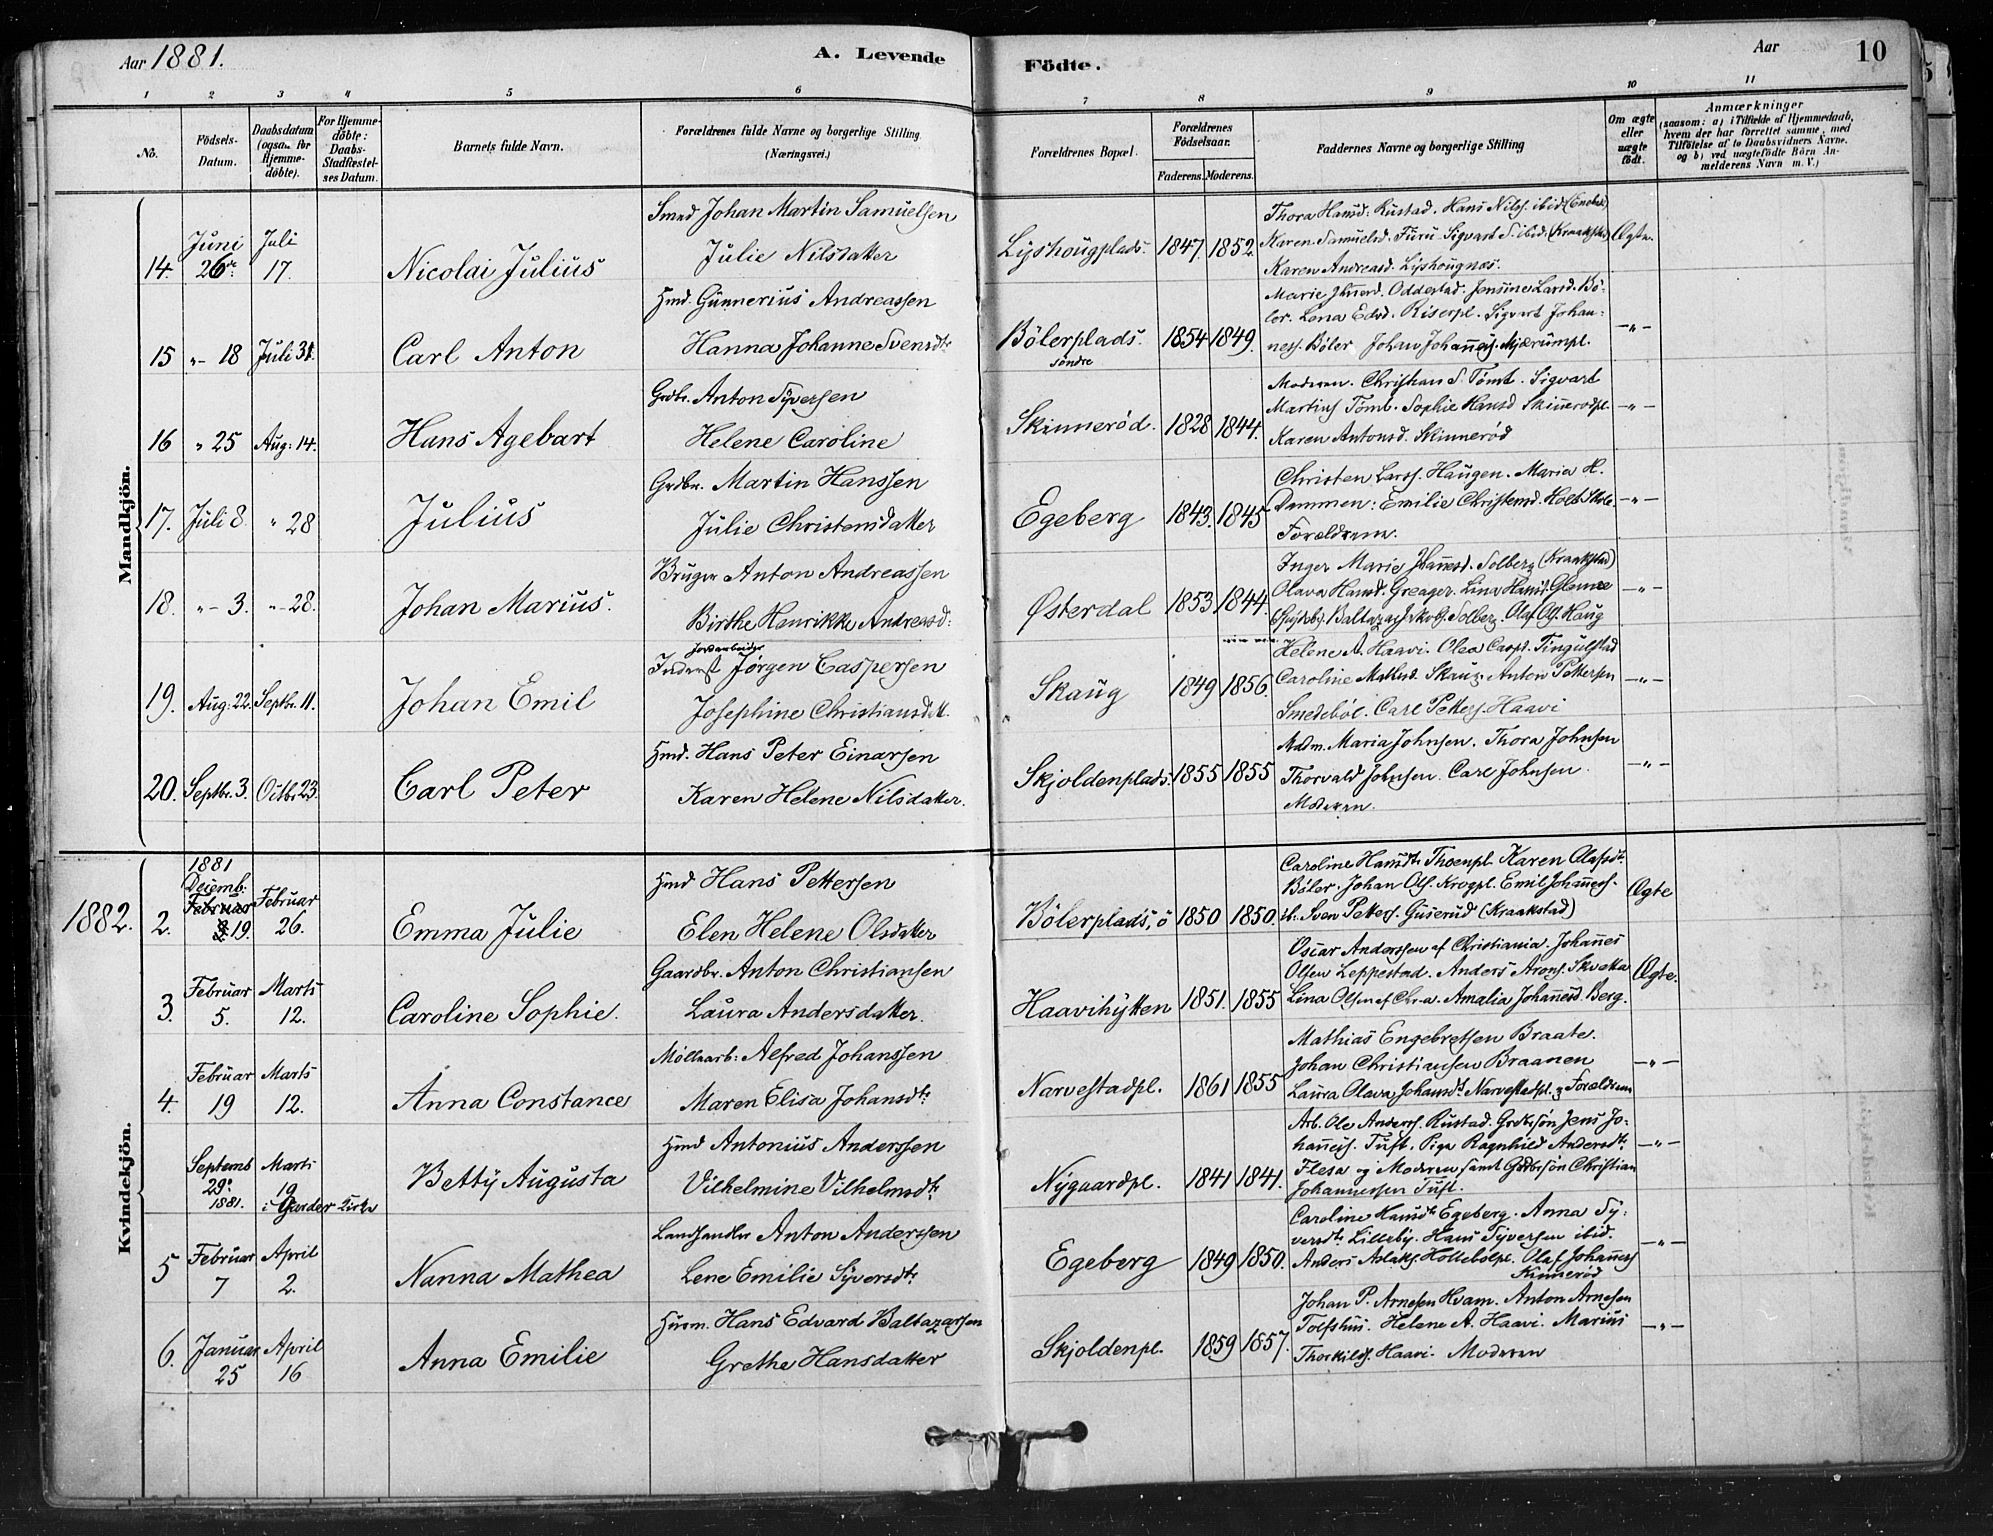 Aar 1881.
A. Levende
Födte.
Aar
10
1 2 3 4 5 6 7 8 9 10 11
No.
Födsels-
Datum.
Daabsdatum
(ogsaa for
Hjemme-
döbte).
For Hjemme-
döbte:
Daabs-
Stadfæstel-
ses Datum.
Barnets fulde Navn.
Forældrenes fulde Navne og borgerlige Stilling
(Næringsvei.)
Forældrenes Bopæl.
Forældrenes
Födselsaar.
Faderens. Moderens.
Faddernes Navne og borgerlige Stilling
Om ægte
eller
uægte
födt.
Anmærkninger
(saasom: a) i Tilfælde af Hjemmedaab,
hvem der har forrettet samme, med
Tilföielse af to Daabsvidners Navne.
og b) ved uægtefödte Börn An-
melderens Navn m. V.)
Mandkjön.
14. Juni 26de Juli 17. Nicolai Julius
Smed Johan Martin Samuelsen
Julie Nilsdatter
Lyshougplads. 1847. 1852.
Thora Hansd. Rustad. Hans Nils. ibid (Enebak)
Karen Samuelsd. Furu. Sigvart S. ibid. (Kraakstad)
Karen Andreasd. Lyshougnæs.
Ægte.
15 " - 18 Juli 31. Carl Anton
Hmd. Gunnerius Andreassen
Hanna Johanne Svensdtr
Bölerplads. söndre 1854 1849.
Marie Oddestad. Jensine Larsd. Bö-
ler. Lena Edvd. Riserpl. Sigvart Johan-
ness. Böler Johan Johanness. Mjærumpl.
— " —
16 " 25 Aug: 14. Hans Agebart
Grdbr. Anton Syversen
Helene Caroline
Skinneröd. 1828 1844.
Moderen. Christian S. Tomt. Sigvart
Martins Tomt. Sophie Hansd Skinnerödpl.
Karen Antonsd. Skinneröd
— " —
17. Juli 8. " 28 Julius
Grdbr. Martin Hanssen
Julie Christensdatter
Egeberg 1843. 1845
Christen Larss. Haugen. Maria H.
Dammen: Emilie Christensd. Holt Skole.
Forældrene.
— " —
18. " - 3. " - 28. Johan Marius.
Bruger Anton Andreassen
Birthe Henrikke Andreasd:
Østerdal 1853 1844.
Inger Marie Solberg (Kraakstad)
Olava Hansd. Greager. Lina Hansd. Glenne
Baltazar Solberg. Olaf Ols. Haug
— " —
19. Aug: 22. Septbr. 11. Johan Emil
Jordarbeider
Inderst Jörgen Caspersen
Josephine Christiansdatt.
Skaug 1849 1856.
Helene A. Haavi. Olea Caspd. Tingulstad
Caroline Mathisd. Skaug. Anton Pettersen
Smedeböl. Carl Petters. Haavi
— " —
20. Septbr. 3. Octbr. 23. Carl Peter
Hmd. Hans Peter Einarsen
Karen Helene Nilsdatter.
Skjoldenplads. 1855 1855
Madm. Maria Johnsen. Thora Johnsen
Thorvald Johnsen. Carl Johnsen.
Moderen.
— " —
1882.
Kvindekjön.
2. 1881 Decemb: Februar 19. Februar 26. Emma Julie
Hmd Hans Pettersen
Elen Helene Olsdatter
Bölerplads, ö 1850 1850.
Caroline Hansdtr Thoenpl. Karen Olafsdtr.
Böler. Johan Ols. Krogpl. Emil Johanness.
ib. Sven Petters. Guserud (Kraakstad)
Ægte
3. Februar 5. Marts 12. Caroline Sophie.
Gaardbr. Anton Christiansen
Laura Andersdatter.
Haavihytten 1851. 1855
Oscar Anderssen af Christiania. Johannes
Olsen Leppestad. Anders Arons. Skvatta
Lina Olsen af Chr-a. Amalia Johannesd. Berg.
Ægte.
4. Februar 19 Marts 12. Anna Constance
Möllearb: Alfred Johanssen
Maren Elisa Johansdtr
Narvestadpl. 1861 1855
Mathias Engebretsen Braate.
Johan Christiansen Braanen
Laura Olava Johansdt. Narvestadpl. & Forældrene
— " —
Septemb 29de 1881. Marts 19 i Garder Kirke Betty Augusta
Hmd Antonius Anderssen
Vilhelmine Vilhelmsdtr
Nygaardpl. 1841 1841.
Arb. Ole Anderss. Rustad. Grdbrsön Jens Jo-
hanness. Tuft. Pige Ragnhild Andersdtr
Flesa og Moderen samt Gdbrsön Christian
Johannessen Tuft.
— " —
5 Februar 7 April 2. Nanna Mathea
Landhandler Anton Anderssen
Lene Emilie Syversdtr
Egeberg 1849 1850.
Caroline Hansdtr Egeberg. Anna Sy-
versdtr Lilleby. Hans Syversen ibid.
Anders Aslaks. Hollebölpl. Olaf Johanness
Kinneröd
— " —
6. Januar 25 April 16 Anna Emilie
Husm. Hans Edvard Baltazarsen
Grethe Hansdatter
Skjoldenpl. 1859 1857.
Johan P. Arnesen Hvam. Anton Arnesen
Tolfshus. Helene A. Haavi. Marius
Thorkilds. Haavi. Moderen
— " —